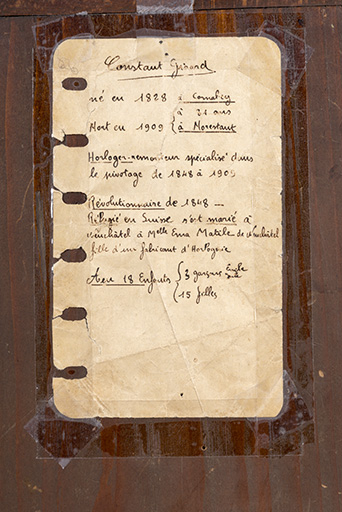 Constant Girard
né en 1828 à Cornabey
à 81 ans
Mort en 1909 à Morestant
Horloger-remonteur spécialisé dans
le pivotage de 1848 à 1909
Révolutionnaire de 1848 —
Réfugié en Suisse s'est marié à
Neuchâtel à Melle Ema Matile de Neuchâtel
fille d'un fabricant d'Horlogerie
A eu 18 Enfants 3 garçons
15 filles